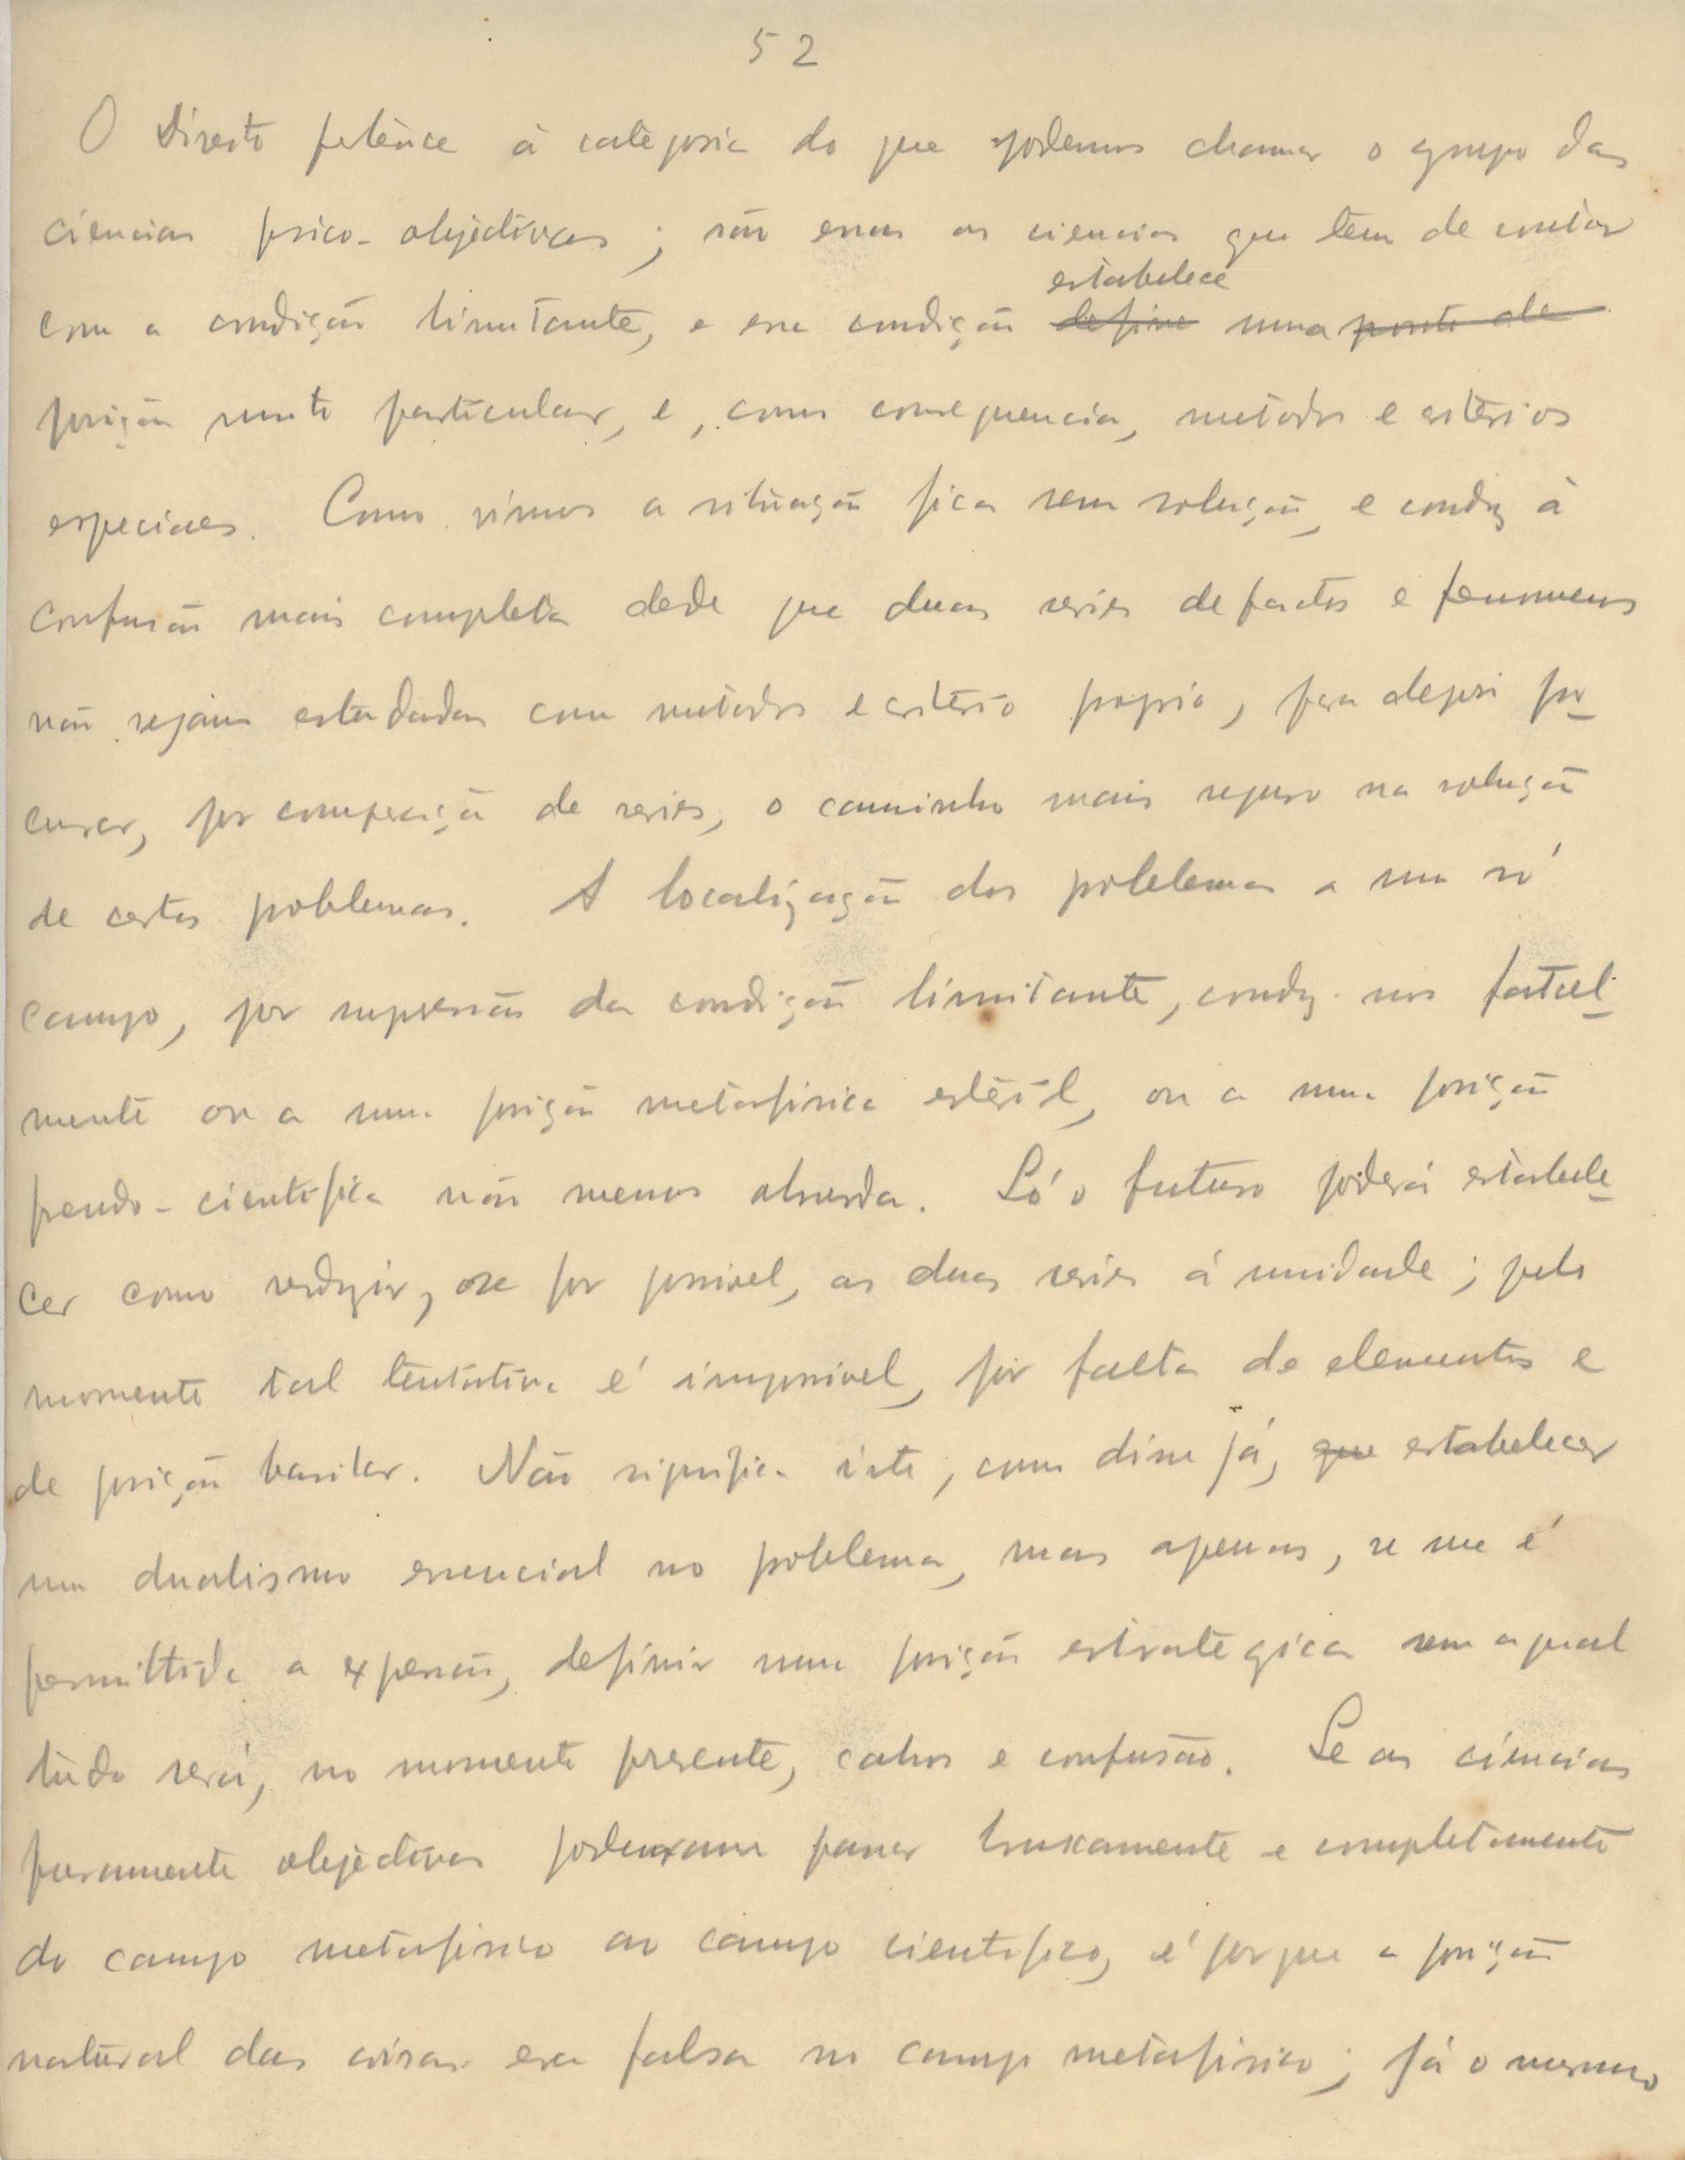 52
O Direito petence à categoria do que podemos chamar o grupo das
ciencias psico-objectivas; são essas as ciencias que tem de contar
estabelece
com a condição limitante, e essa condição define uma ponto de
posição muito particular, e, como consequencia, metodos e criterios
especiaes. Como vimos a situação fica sem solução, e conduz à
confusão mais completa desde que duas series de factos e fenomenos
não sejam estudadas com metodos e criterio proprio, para depois pro
curar, por comparação de series, o caminho mais seguro na solução
de certos problemas. A localização dos problemas a um só
campo, por supressão da condição limitante, conduz-nos fatal
mente ou a uma posição metafisica esteril, ou a uma posição
pseudo-cientifica não menos absurda. Só o futuro poderá estabele
cer como reduzir, se por possivel, as duas series á unidade; pelo
momento tal tentativa é impossivel, por falta de elementos e
de posição basilar. Não significa isto, como disse já, que estabelecer
um dualismo essencial no problema, mas apenas, se me é
permittida a expressão, definir uma posição estrategica sem a qual
tudo será, no momento presente, cahos e confusão. Se as ciencias
puramente objectivas poderam passar bruscamente e completamente
do campo metafisico ao campo cientifico, é porque a posição
natural das coisas era falsa no campo metafisico; já o mesmo